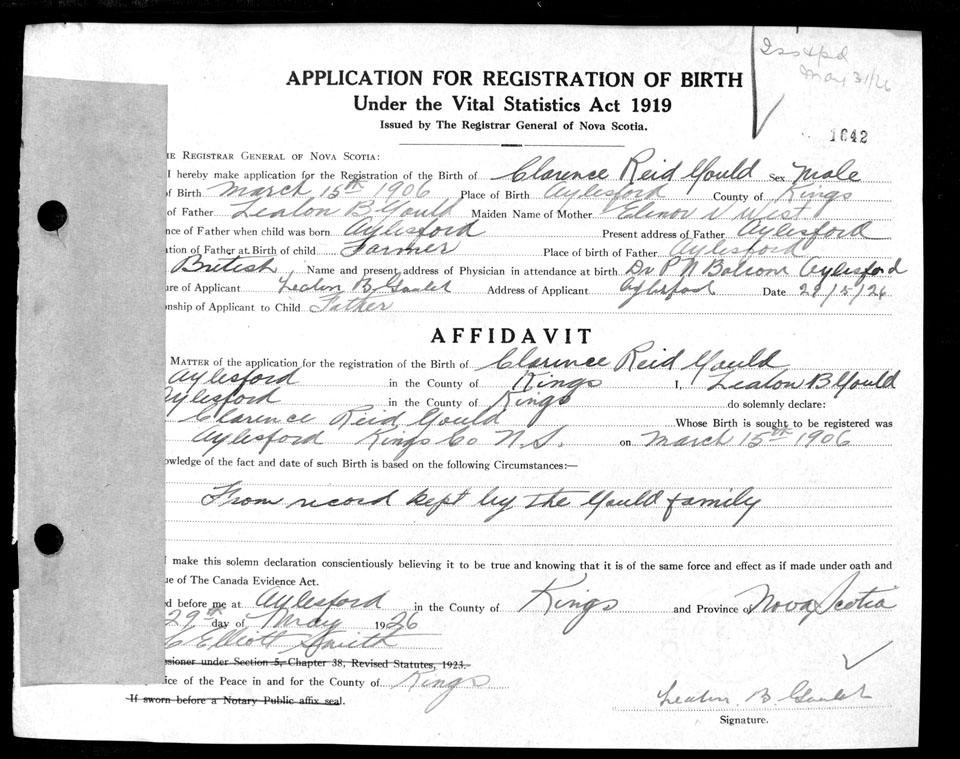 Iss & pd
May 31/26
APPLICATION FOR REGISTRATION OF BIRTH
Under the Vital Statistics Act 1919
Issued by The Registrar General of Nova Scotia.
1642
HE REGISTRAR GENERAL OF NOVA SCOTIA:
I hereby make application for the Registration of the Birth of Clarence Reid Gould Sex Male
of Birth March 15th 1906 Place of Birth Aylesford County of Kings
of Father Leaton B Gould Maiden Name of Mother Elinor V West
nce of Father when child was born Aylesford Present address of Father Aylesford
ation of Father at Birth of child Farmer Place of birth of Father Aylesford
British, Name and present address of Physician in attendance at birth Dr P N Balcom Aylesford
ure of Applicant Leaton B. Gould Address of Applicant Aylesford Date 29/5/26
nship of Applicant to Child Father
AFFIDAVIT
MATTER of the application for the registration of the Birth of Clarence Reid Gould
Aylesford in the County of Kings I, Leaton B Gould
Aylesford in the County of Kings do solemnly declare:
Clarence Reid Gould Whose Birth is sought to be registered was
Aylesford Kings Co N.S. on March 15th 1906
owledge of the fact and date of such Birth is based on the following Circumstances:—
From record kept by the Gould family
I make this solemn declaration conscientiously believing it to be true and knowing that it is of the same force and effect as if made under oath and
ue of The Canada Evidence Act.
d before me at Aylesford in the County of Kings and Province of Nova Scotia
29th day of May 1926
Elliott Smith
sioner under Section 5, Chapter 38, Revised Statutes, 1923.
ice of the Peace in and for the County of Kings
If sworn before a Notary Public affix seal.
Leaton. B. Gould
Signature.